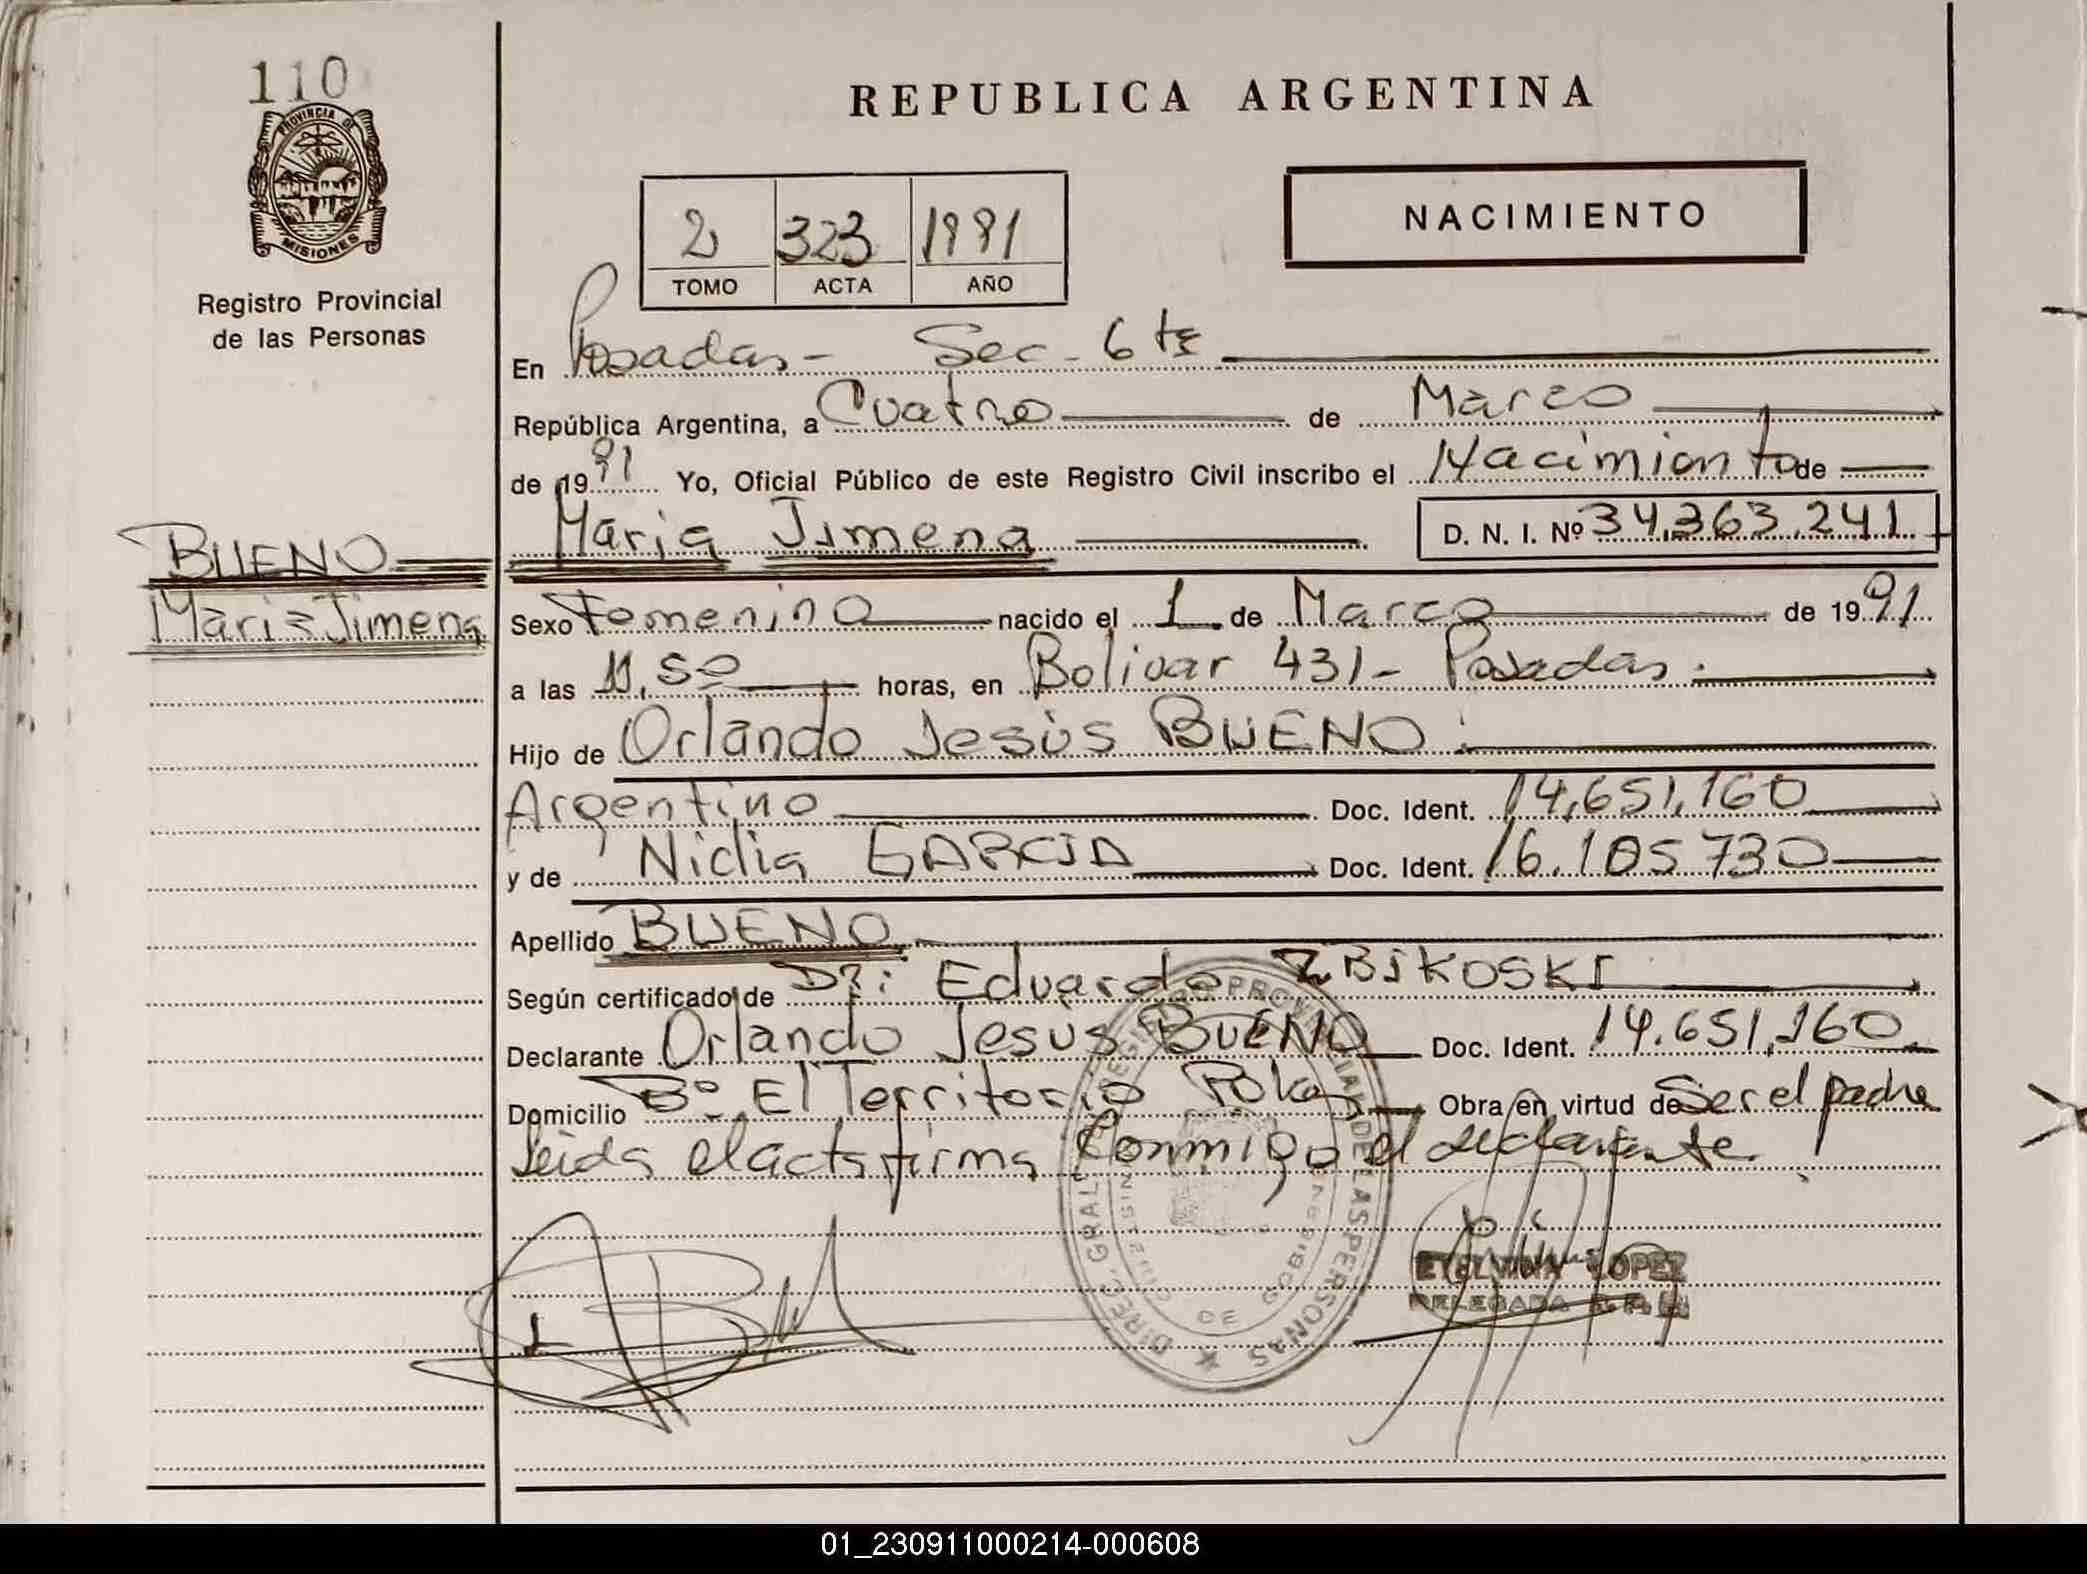 110
PROVINCIA DE
MISIONES
Registro Provincial
de las Personas
REPUBLICA ARGENTINA
NACIMIENTO
2 323 1991
TOMO ACTA AÑO
En Posadas - Sec - 6ta
República Argentina, a Cuatro de Marzo
de 1991 Yo, Oficial Público de este Registro Civil inscribo el Nacimiento de
BUENO Maria Jimena D. N. I. Nº 34.363.241
Maria Jimena Sexo Femenino nacido el 1 de Marzo de 1991
a las 11,50 horas, en Bolivar 431 - Posadas.
Hijo de Orlando Jesús BUENO
Argentino Doc. Ident. 14.651.160
y de Nidia GARCIA Doc. Ident. 16.105.730
Apellido BUENO
Según certificado de Dr: Eduardo ZBIKOSKI
Declarante Orlando Jesus BUENO Doc. Ident. 14.651.160
Domicilio Bº El Territorio Obra en virtud de Ser el padre
Leida el acta firma Conmigo el declarante.
DIREC. GRAL. REGISTRO PROVINCIAL DE LAS PERSONAS
DE GOBIERNO
LOPEZ
DELEGADA
01_230911000214-000608